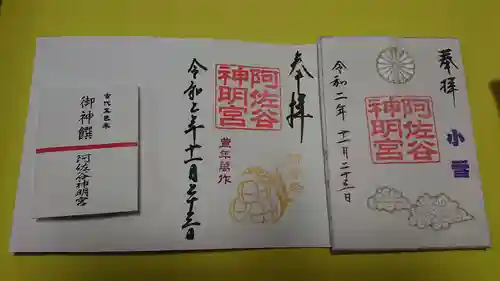 古代五色米
御神饌
阿佐谷神明宮
奉拝
阿佐谷
神明宮
豊年萬作
令和二年十一月二十三日
奉拝
小雪
阿佐谷
神明宮
令和二年十一月二十三日